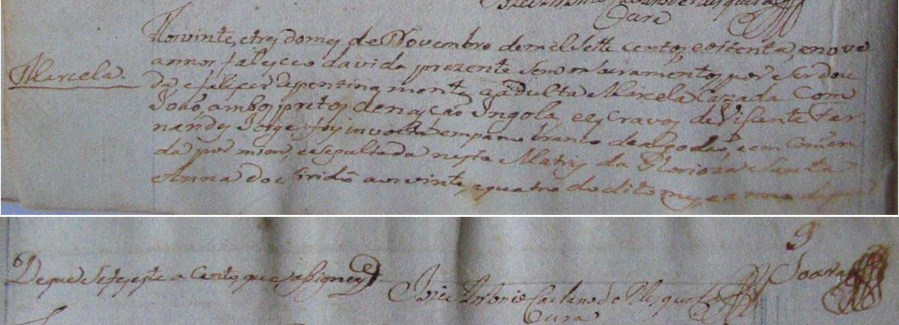 Cura
Marcela.
Aos vinte, e tres do mes de Novembro de mil sette centos, e oitenta, e nove
annos faleceo da vida prezente sem os Sacramentos por ser dou
da, e falecer repentinamente, a adulta Marcela Cazada com
João, ambos pretos de nação Angola, e escravos de Visente Fer
nandes Jorge: foy involta em pano branco de algodão, e encomen
da por mim, e sepultada nesta Matriz da Glorioza Santa
Anna do aos vinte, e quatro do dito mes, e anno
9
De que fiz este acento, que assigney
Soares
Joze Antonio Caetano de Mesquita
Cura